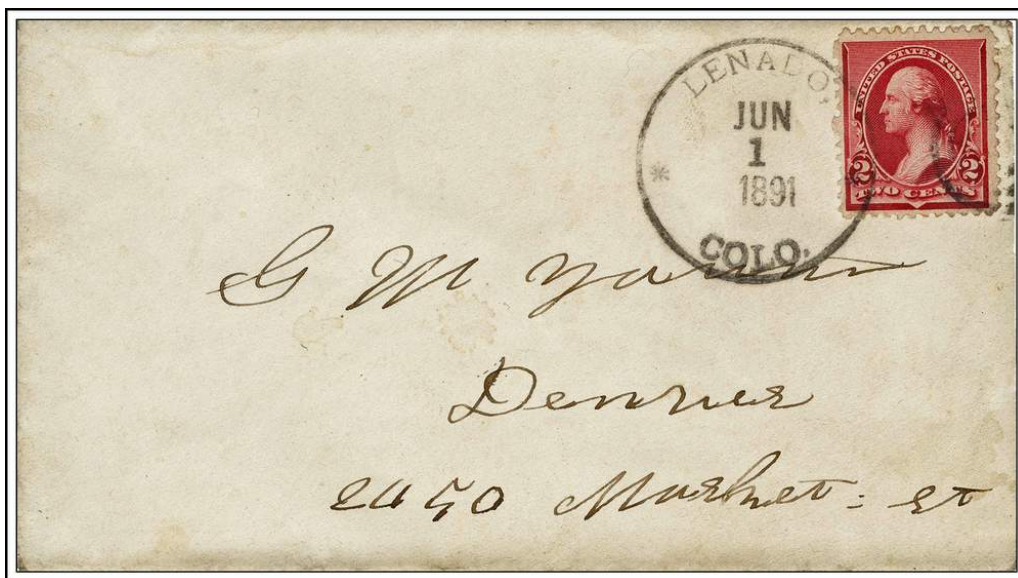 LENADO,
JUN
1
1891
COLO.
UNITED STATES POSTAGE
2 2
TWO CENTS
G M
Denver
2450 Market st